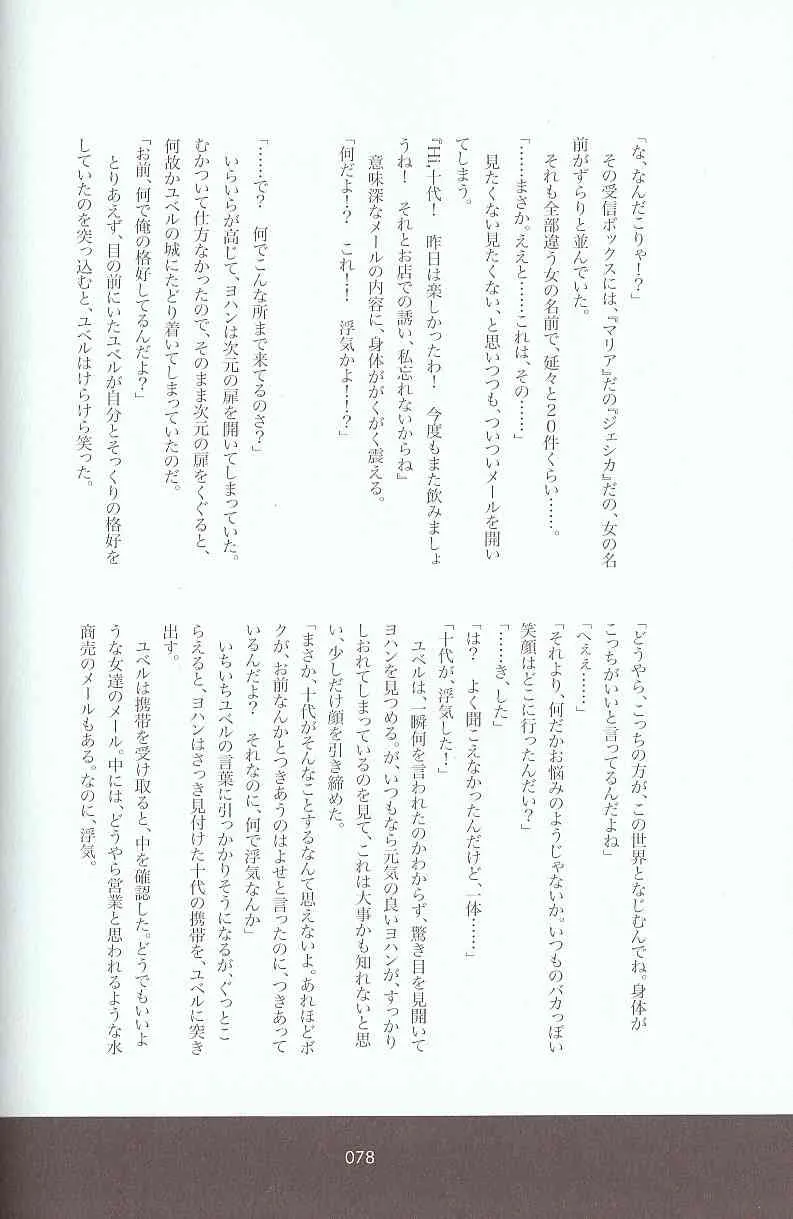 「な、なんだこりゃ！？」
その受信ボックスには、『マリア』だの『ジェシカ』だの、女の名
前がずらりと並んでいた。
それも全部違う女の名前で、延々と２０件くらい……。
「……まさか。ええと……これは、その……」
見たくない見たくない、と思いつつも、ついついメールを開い
てしまう。
『Hi,十代！　昨日は楽しかったわ！　今度もまた飲みましょ
うね！　それとお店での誘い、私忘れないからね』
意味深なメールの内容に、身体ががくがく震える。
「何だよ！？　これ！！　浮気かよ！！？」
「……で？　何でこんな所まで来てるのさ？」
いらいらが高じて、ヨハンは次元の扉を開いてしまっていた。
むかついて仕方なかったので、そのまま次元の扉をくぐると、
何故かユベルの城にたどり着いてしまっていたのだ。
「お前、何で俺の格好してるんだよ？」
とりあえず、目の前にいたユベルが自分とそっくりの格好を
していたのを突っ込むと、ユベルはけらけら笑った。
「どうやら、こっちの方が、この世界となじむんでね。身体が
こっちがいいと言ってるんだよね」
「へぇぇ……」
「それより、何だかお悩みのようじゃないか。いつものバカっぽい
笑顔はどこに行ったんだい？」
「……き、した」
「は？　よく聞こえなかったんだけど、一体……」
「十代が、浮気した！」
ユベルは、一瞬何を言われたのかわからず、驚き目を見開いて
ヨハンを見つめる。が、いつもなら元気の良いヨハンが、すっかり
しおれてしまっているのを見て、これは大事かも知れないと思
い、少しだけ顔を引き締めた。
「まさか、十代がそんなことするなんて思えないよ。あれほどボ
クが、お前なんかとつきあうのはよせと言ったのに、つきあって
いるんだよ？　それなのに、何で浮気なんか」
いちいちユベルの言葉に引っかかりそうになるが、ぐっとこ
らえると、ヨハンはさっき見付けた十代の携帯を、ユベルに突き
出す。
ユベルは携帯を受け取ると、中を確認した。どうでもいいよ
うな女達のメール。中には、どうやら営業と思われるような水
商売のメールもある。なのに、浮気。
078